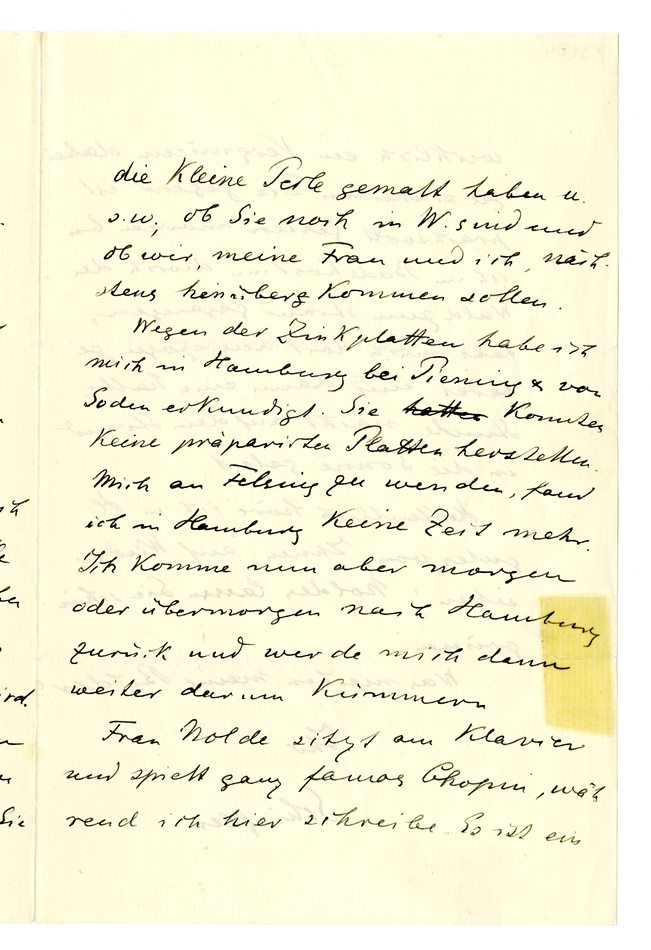 die kleine Perle gemalt haben u.
s. w., ob Sie noch in W. sind und
ob wir, meine Frau und ich, näch-
stens hinüberkommen sollen.
Wegen der Zinkplatten habe ich
mich in Hamburg bei Piening & von
Soden erkundigt. Sie hatten konnten
keine präparirten Platten herstellen.
Mich an Felsing zu wenden, fand
ich in Hamburg keine Zeit mehr.
Ich komme nun aber morgen
oder übermorgen nach Hamburg
zurück und werde mich dann
weiter darum kümmern
Frau Nolde sitzt am Klavier
und spielt ganz famos Chopin, wäh
rend ich hier schreibe. Es ist ein
ird.
Sie